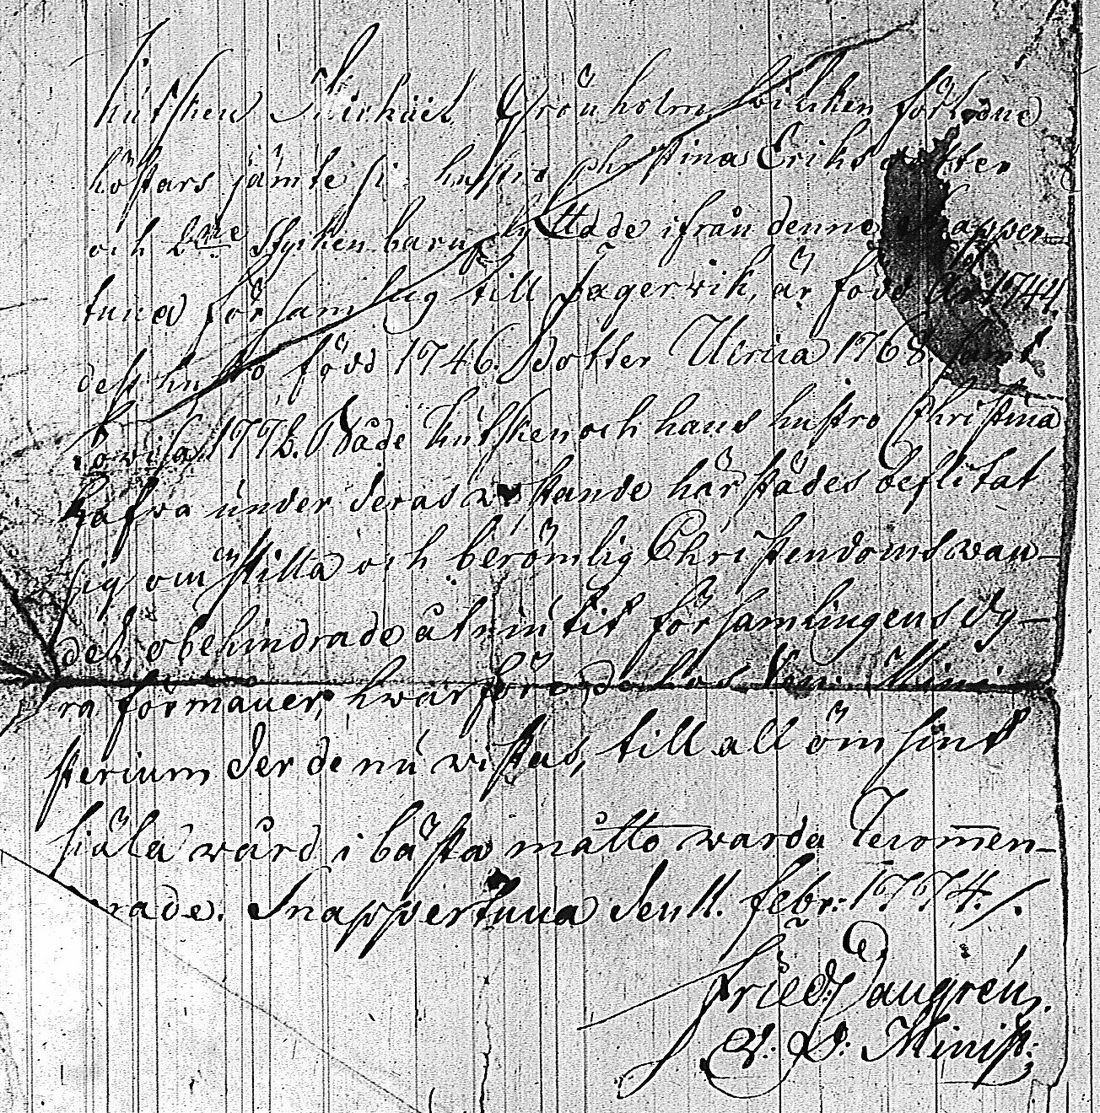 Kusken Michäel Grönholm, hwilken förledne
höstars jämte si. hustro Christina Ericksdotter
och 2ne stycken barn flyttade ifrån denne Snapper-
tuna församling till Fagerwik, är född År 1744
dess husto född 1746. Dotter Ulrica 1768 samt
Lowisa 1772. Både kusken och hans hustro Christina
hafwa under deras wistande härstädes beflitat
sig om en stilla och berömlig Christendoms wan-
del, obehindrade åtniutit församlingens dy-
ra förmåner, hwarföre de hos Ven: Mini
sterium der de nu wistas, till all ömsint
siäla wård i bästa måtto warda recommen-
rade. Snappertuna den 11. Febr: 1774.
Fried:
V: D: Minist: